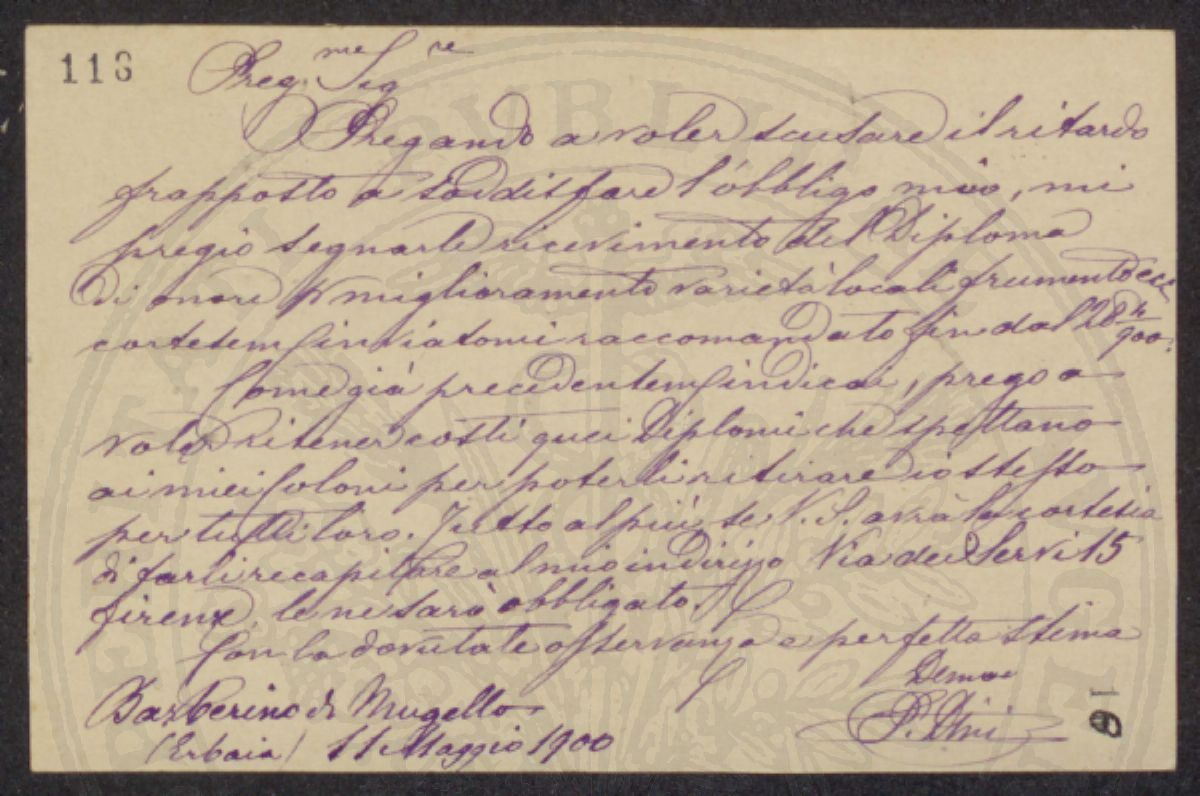 116
Preg.me Sig.re
Pregando a voler scusare il ritardo
frapposto a soddisfare l'obbligo mio, mi
pregio segnarle ricevimento del Diploma
di onore p miglioramento varietà locali frumento ecc
cortesem inviatomi raccomandato fin dal 28 4/900.
Come già precedentem indicai, prego a
voler ritener costì quei Diplomi che spettano
ai miei Coloni per poterli ritirare io stesso
per tutti loro. Tutto al più se V. S. avrà la cortesia
di farli recapitare al mio indirizzo Via dei Servi 15
firenze, le ne sarò obbligato.
Con la dovuta osservanza e perfetta stima
Barberino di Mugello
(Erbaia) 11 Maggio 1900
Devmo
P.
18